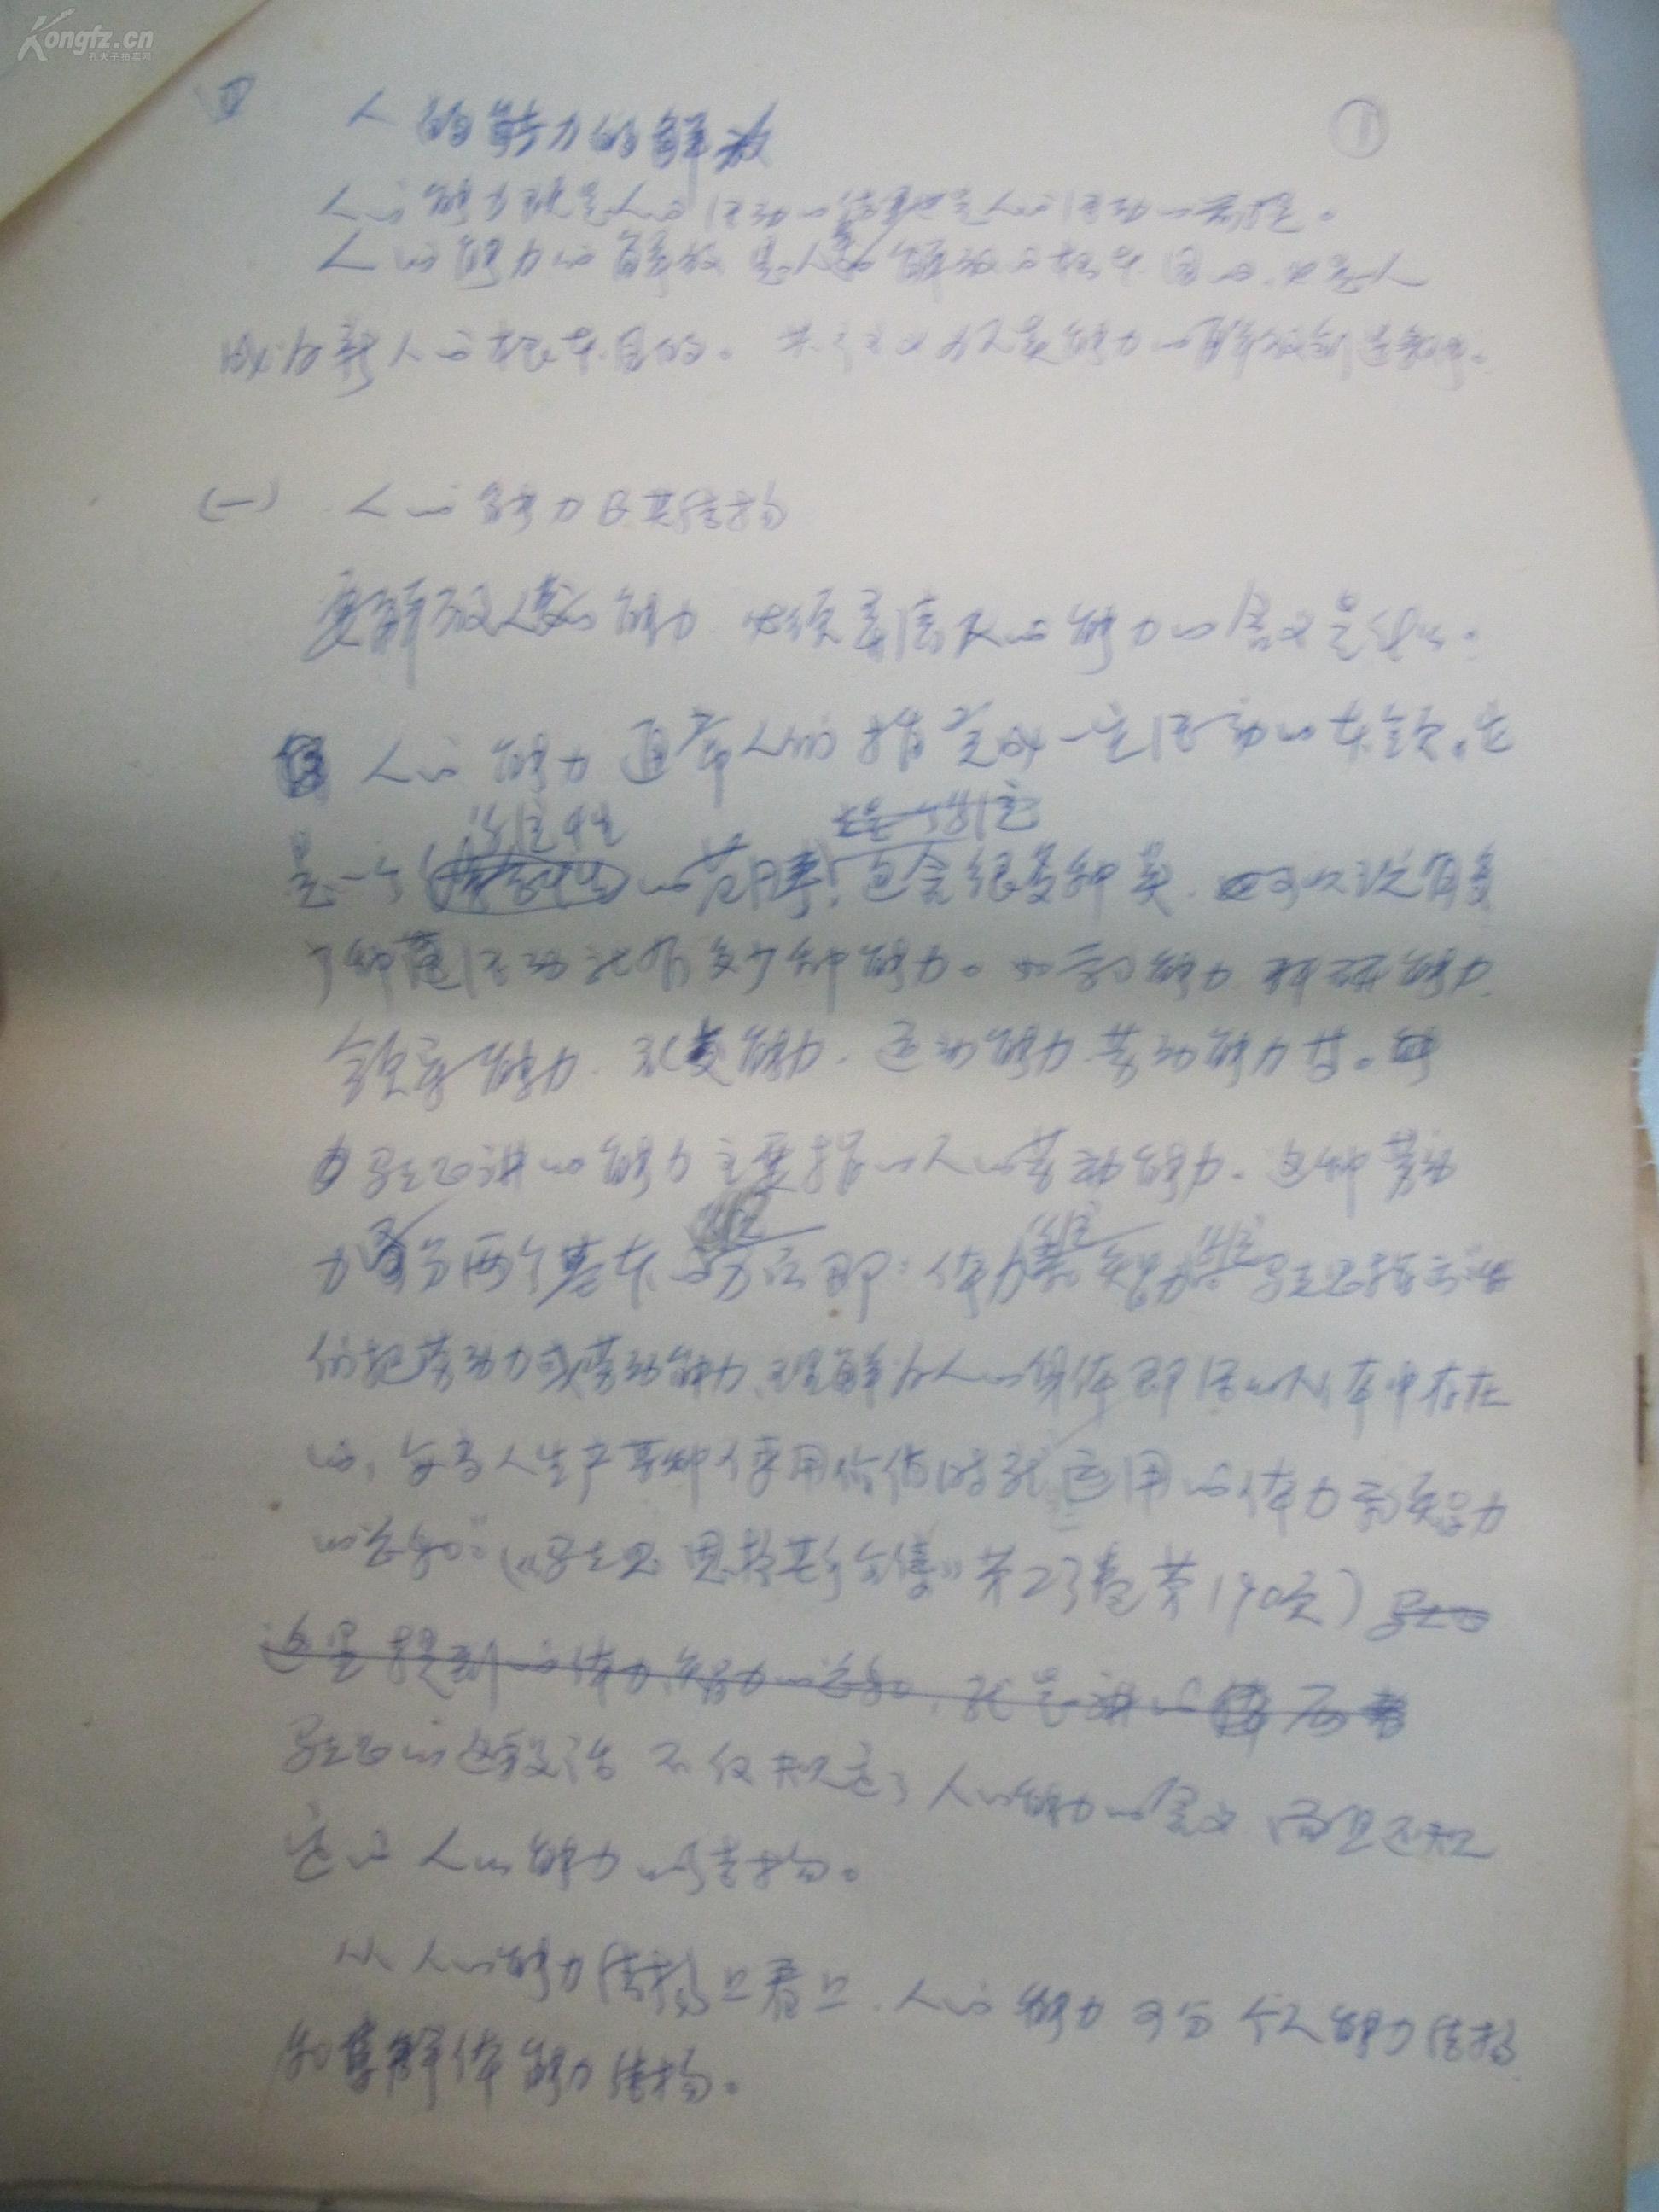 Kongfz.cn
孔夫子拍卖网
①
人的能力的解放
人的能力既是人的活动的结果也是人的活动的前提。
人的能力的解放是人类解放的根本目的,也是人
成为新人的根本目的。共产主义为人类能力的解放创造条件。
(一) 人的能力及其结构
要解放人类的能力 必须弄清人的能力的含义是什么。
人的能力 通常人们指完成一定活动的本领。它
是一个 的范畴!包含很多种类.可以说有多
少种活动就有多少种能力。如 能力 科研能力
领导能力. 能力. 运动能力 劳动能力等。
马克思讲的能力主要指的人的劳动能力. 这种劳动
力 分两个基本 方面 即:体力 智力 马克思指出:"我
们把劳动力或劳动能力,理解为人的身体即活的人体中存在
的,每当人生产某种使用价值时就运用的体力和智力
的总和。"(《马克思恩格斯全集》第23卷第190页)
这里提到的体力智力的总和,就是讲的
马克思的这段话 不仅规定了人的能力的含义 而且还规
定了人的能力的结构。
从人的能力结构上看 人的能力可分个人能力结构
和 体能力结构。